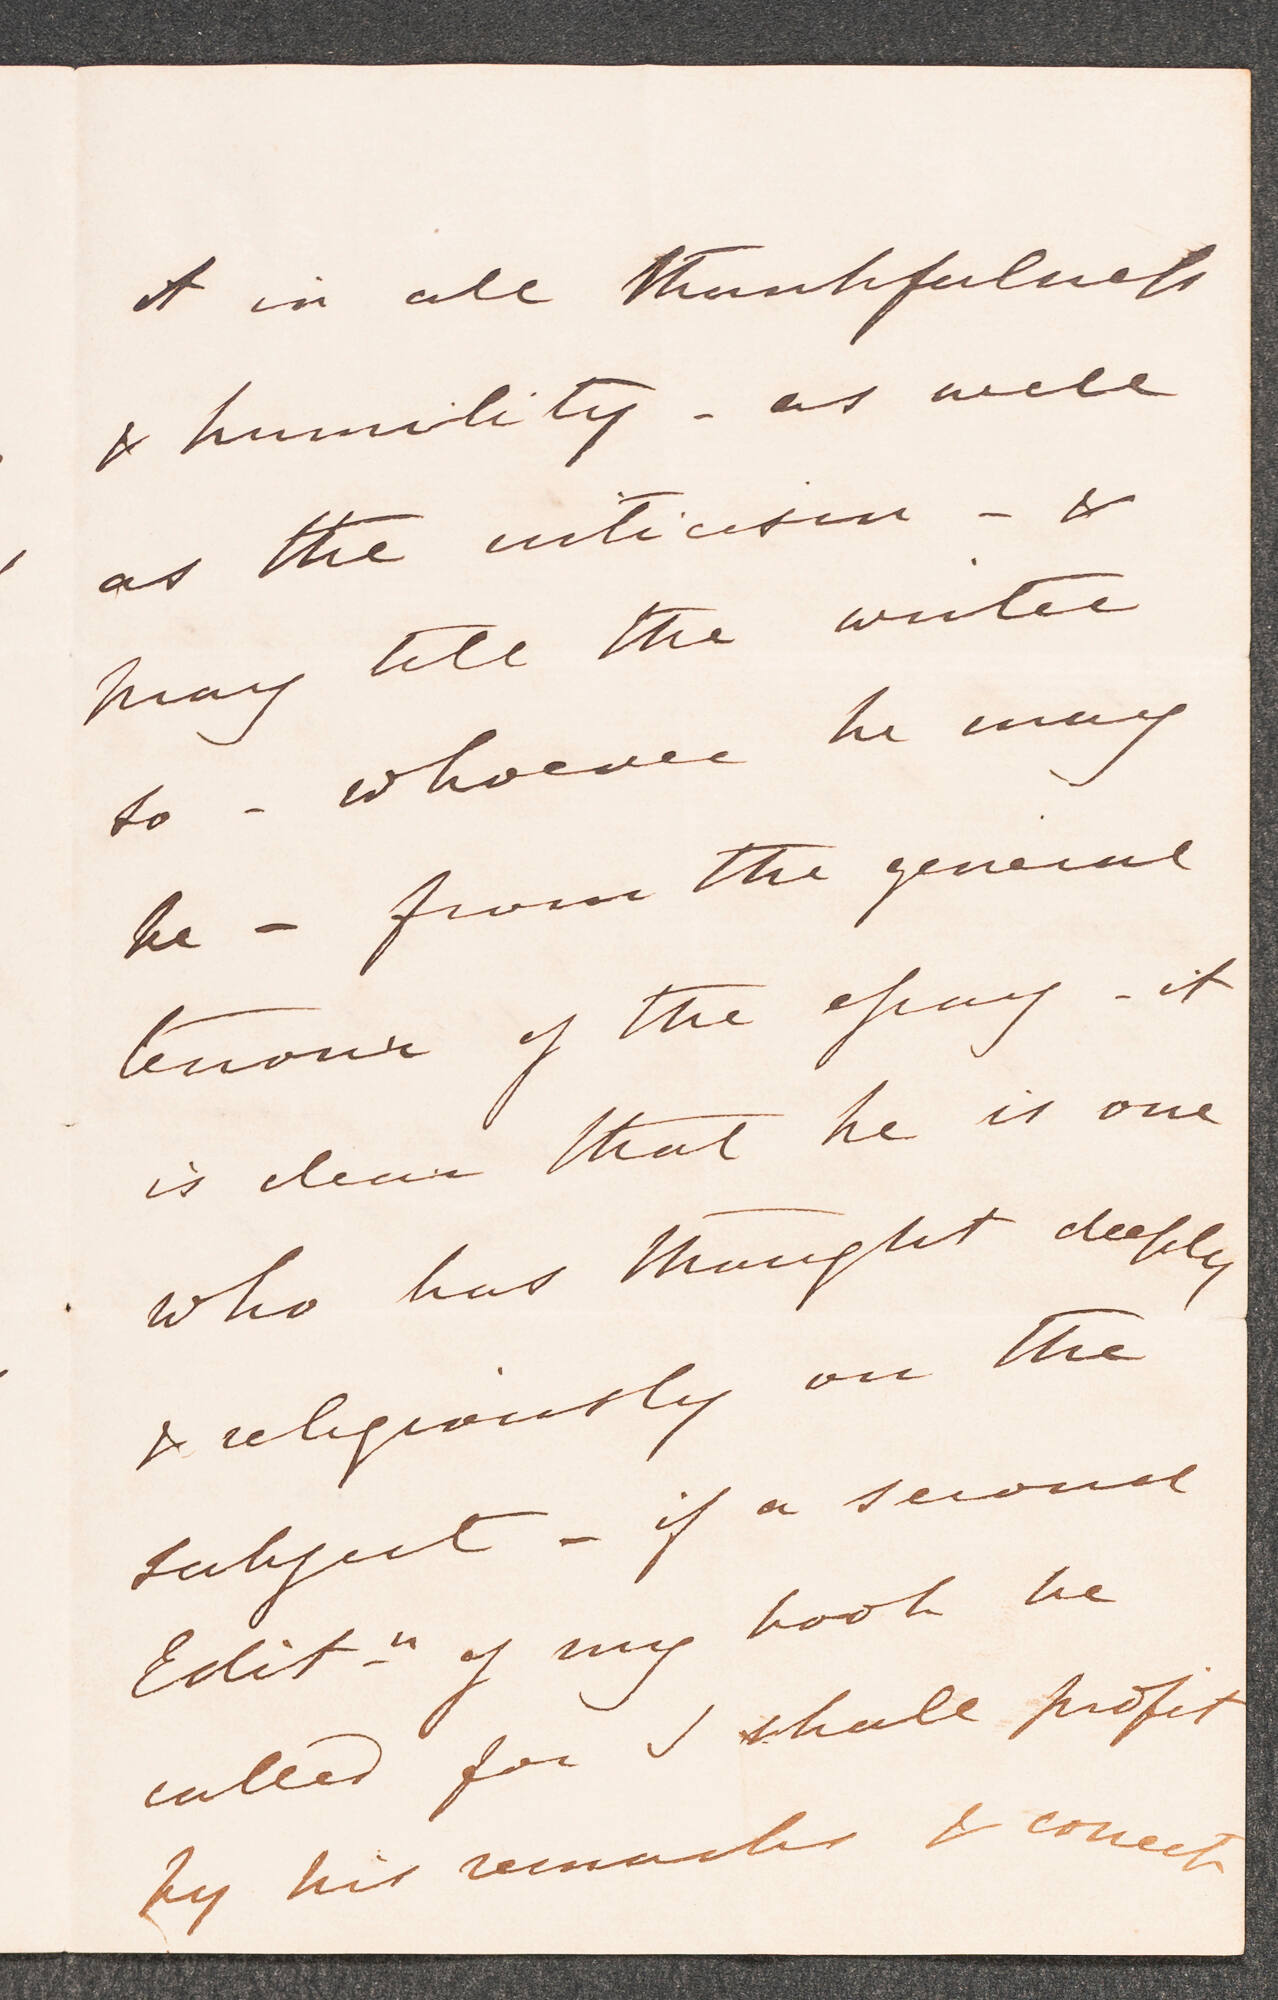 it in all thankfulness
& humility - as well
as the criticism - &
may tell the writer
so - whoever he may
be - from the general
tenour of the essay - it
is clear that he is one
who has thought deeply
& religiously on the
subject - if a second
Editn of my book be
called for I shall profit
by his remarks & correct